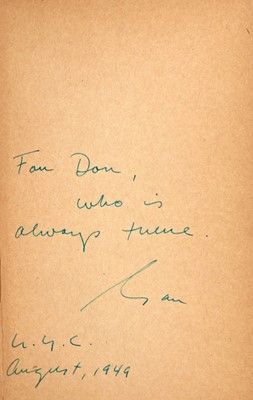 For Don,
who is
always there.
N.Y.C.
August, 1949